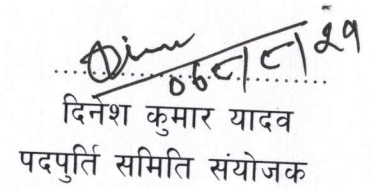 दिनेश कुमार यादव
पदपुर्ति समिति संयोजक